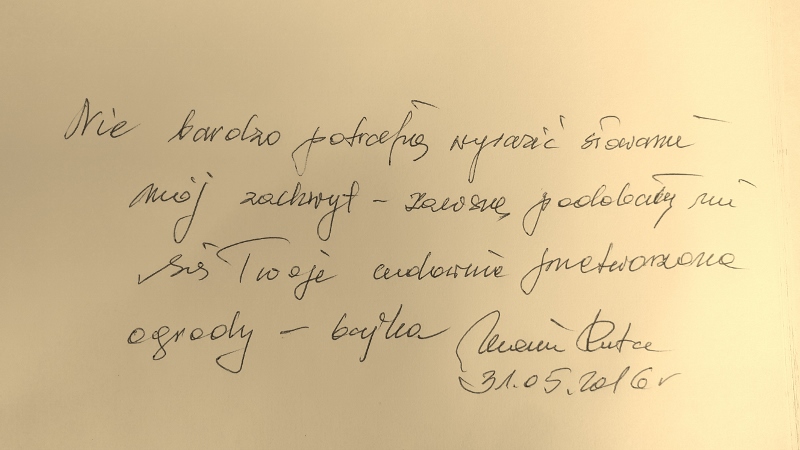 Nie bardzo potrafię wyrazić słowami
mój zachwyt – zawsze podobały mi
się Twoje cudownie przetworzone
ogrody – bajka
31.05.2016 r